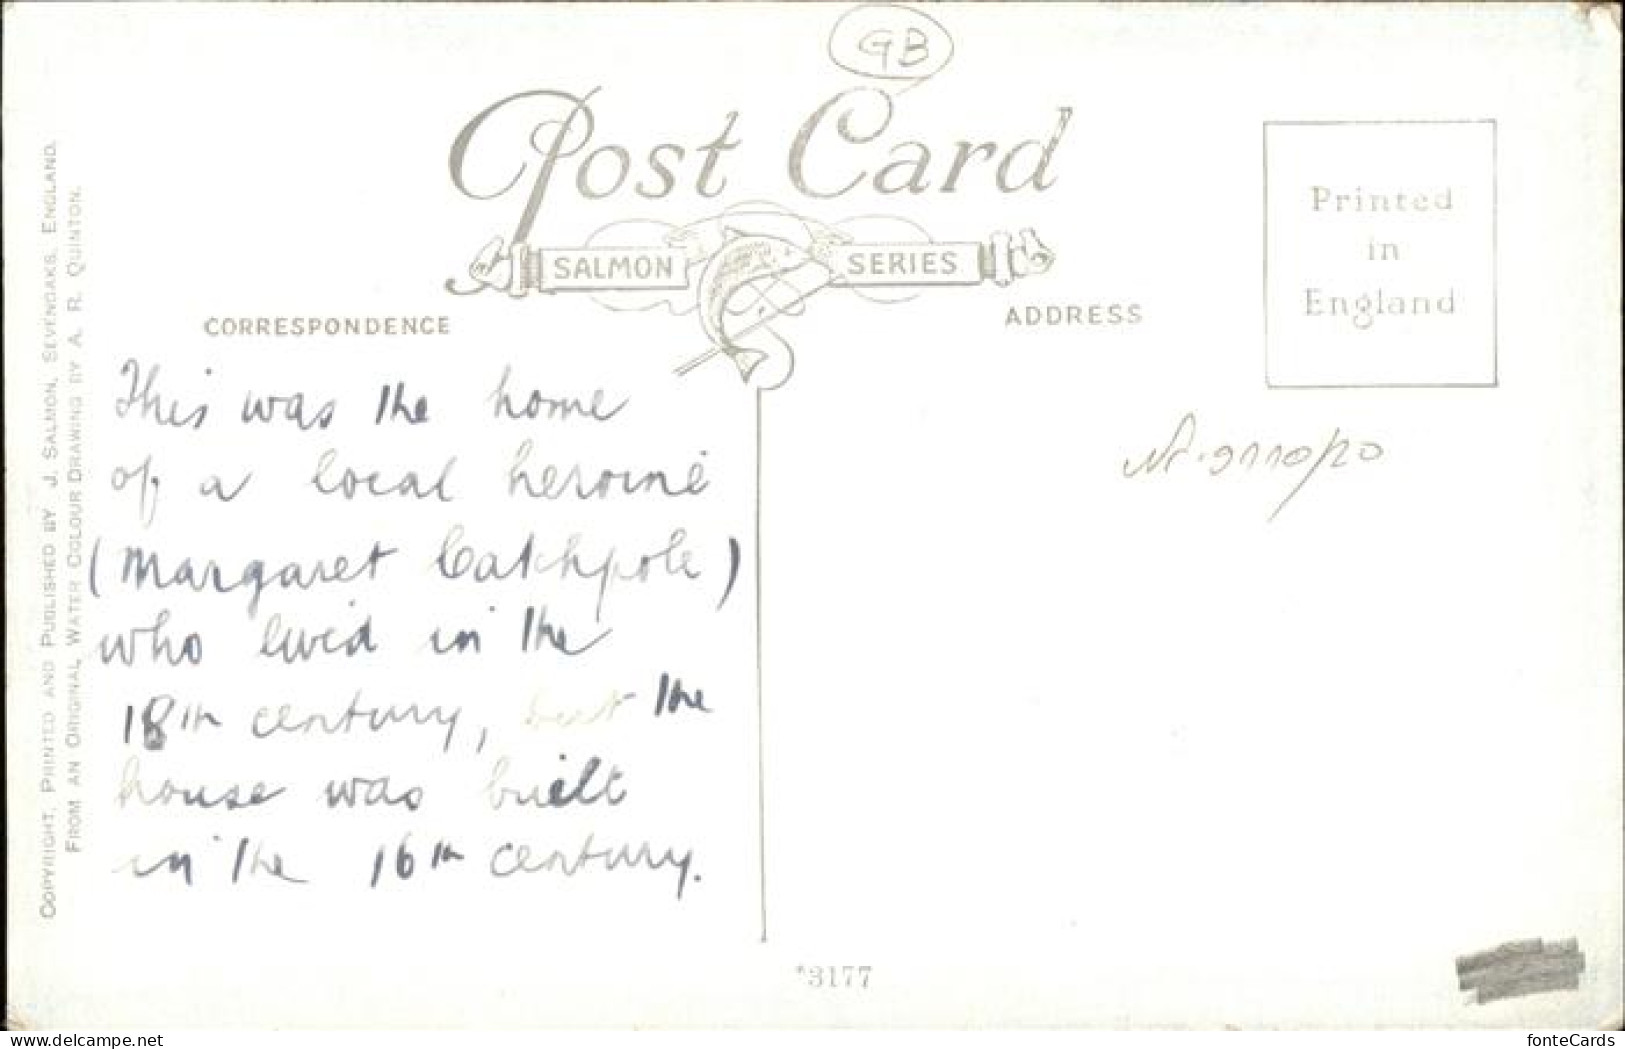 GB
Post Card
SALMON SERIES
CORRESPONDENCE
ADDRESS
Printed
in
England
This was the home
of a local heroine
(Margaret Catchpole)
who lived in the
18th century, but the
house was built
in the 16th century.
COPYRIGHT, PRINTED AND PUBLISHED BY J. SALMON, SEVENOAKS, ENGLAND.
FROM AN ORIGINAL WATER COLOUR DRAWING BY A. R. QUINTON.
*3177
www.delcampe.net
fonteCards